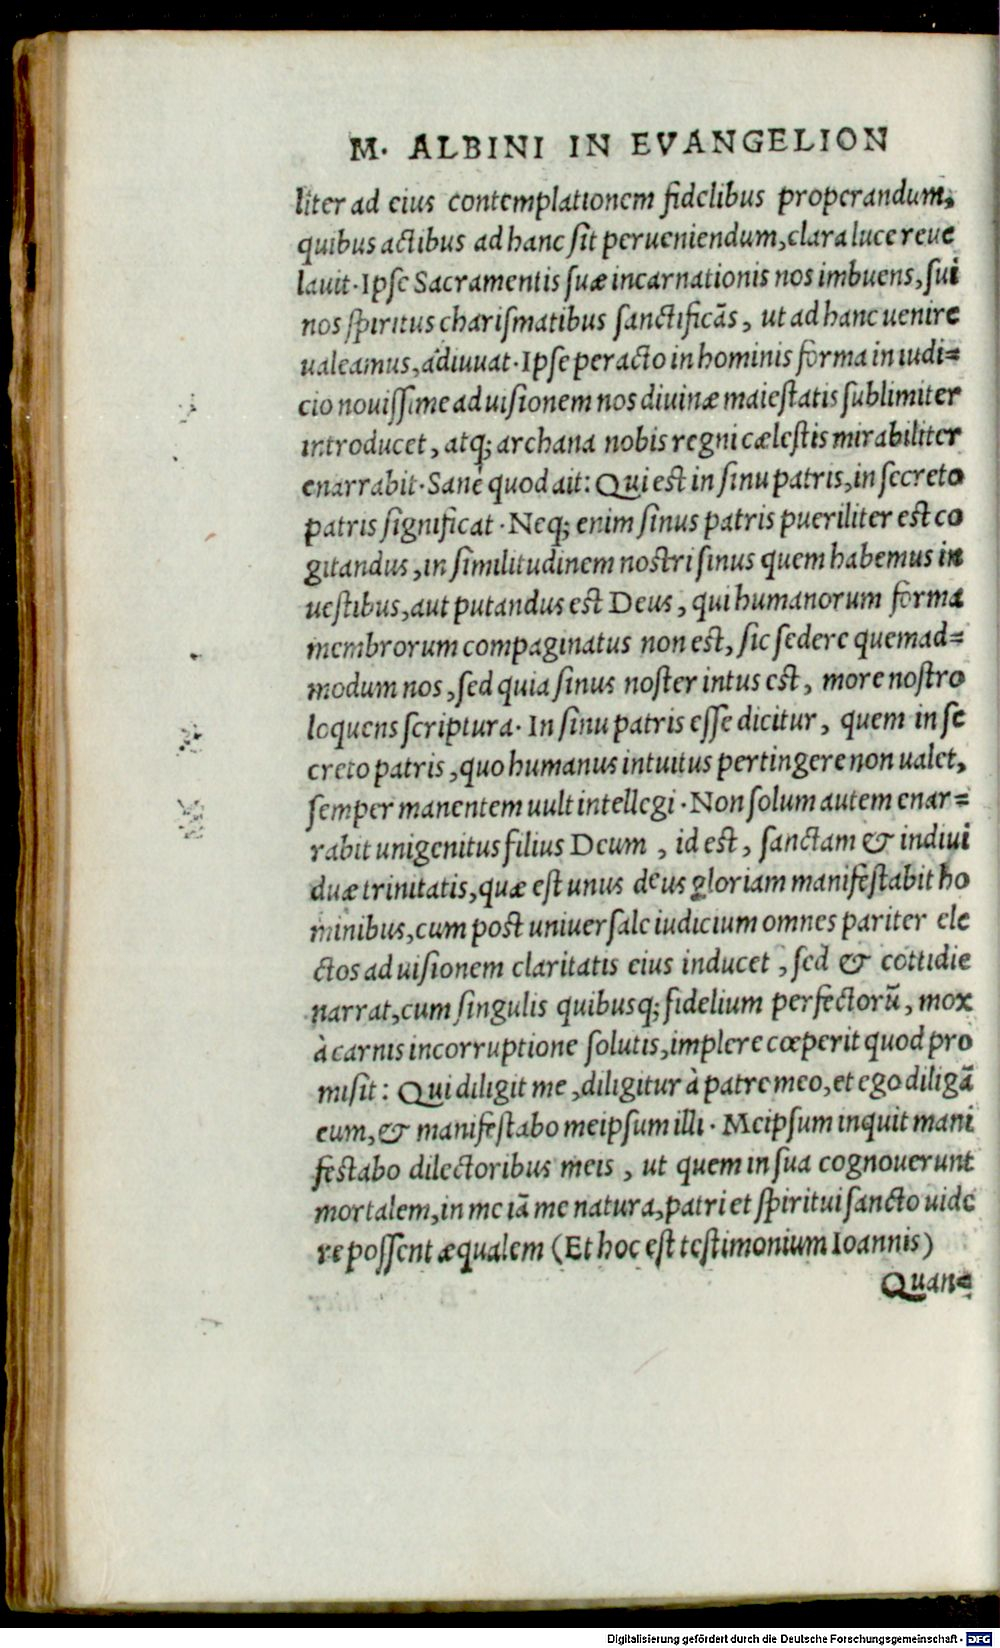 M. ALBINI IN EVANGELION
liter ad eius contemplationem fidelibus properandum,
quibus actibus ad hanc sit perueniendum, clara luce reue
lauit. Ipse Sacramentis suæ incarnationis nos imbuens, sui
nos spiritus charismatibus sanctificãs, ut ad hanc uenire
ualeamus, adiuuat. Ipse peracto in hominis forma in iudi=
cio nouissime ad uisionem nos diuinæ maiestatis sublimiter
introducet, atq; archana nobis regni cælestis mirabiliter
enarrabit. Sane quod ait: Qui est in sinu patris, in secreto
patris significat. Neq; enim sinus patris pueriliter est co
gitandus, in similitudinem nostri sinus quem habemus in
uestibus, aut putandus est Deus, qui humanorum forma
membrorum compaginatus non est, sic sedere quemad=
modum nos, sed quia sinus noster intus est, more nostro
loquens scriptura. In sinu patris esse dicitur, quem in se
creto patris, quo humanus intuitus pertingere non ualet,
semper manentem uult intellegi. Non solum autem enar=
rabit unigenitus filius Deum, id est, sanctam & indiui
duæ trinitatis, quæ est unus deus gloriam manifestabit ho
minibus, cum post uniuersale iudicium omnes pariter ele
ctos ad uisionem claritatis eius inducet, sed & cottidie
narrat, cum singulis quibusq; fidelium perfectorũ, mox
à carnis incorruptione solutis, implere cœperit quod pro
misit: Qui diligit me, diligitur à patre meo, et ego diligã
eum, & manifestabo meipsum illi. Meipsum inquit mani
festabo dilectoribus meis, ut quem in sua cognouerunt
mortalem, in me iã me natura, patri et spiritui sancto uide
re possent æqualem (Et hoc est testimonium Ioannis)
Quan=
Digitalisierung gefördert durch die Deutsche Forschungsgemeinschaft - DFG